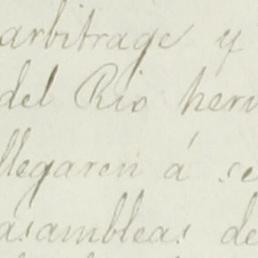 arbitrage y
del Rio herm
llegaren á se
asambleas de